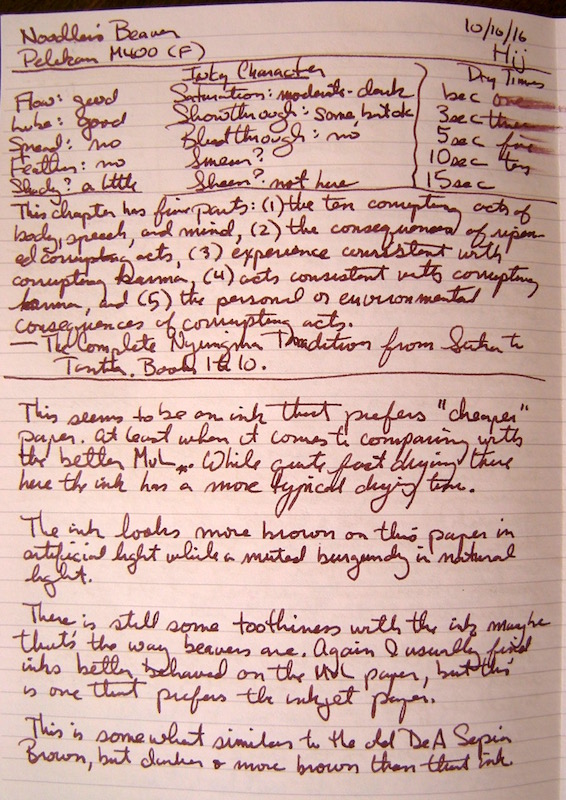 Noodler's Beaver
10/16/16
Pelikan M400 (F)
Hü
Inky Character
Dry Times
Flow: good
Saturation: moderate-dark
1sec one
Lube: good
Showthrough: some, but ok
3sec three
Spread: no
Bleedthrough: no
5sec five
Feather: no
Smear?
10sec ten
Shady? a little
Sheen? not here
15sec
This chapter has five parts: (1) the ten corrupting acts of
body, speech, and mind, (2) the consequences of ripen-
ed corrupting acts, (3) experience consistent with
corrupting karma, (4) acts consistent with corrupting
karma, and (5) the personal or environmental
consequences of corrupting acts.
— The Complete Nyingma Tradition from Sutra to
Tantra. Books 1 to 10.
This seems to be an ink that prefers "cheaper"
paper. At least when it comes to comparing with
the better MvL... While quite fast drying there
here the ink has a more typical drying time.
The ink looks more brown on this paper in
artificial light while a muted burgundy in natural
light.
There is still some toothiness with the ink, maybe
that's the way beavers are. Again I usually find
inks better behaved on the MvL paper, but this
is one that prefers the inkjet paper.
This is somewhat similar to the old DeA Sepia
Brown, but darker & more brown than that ink.